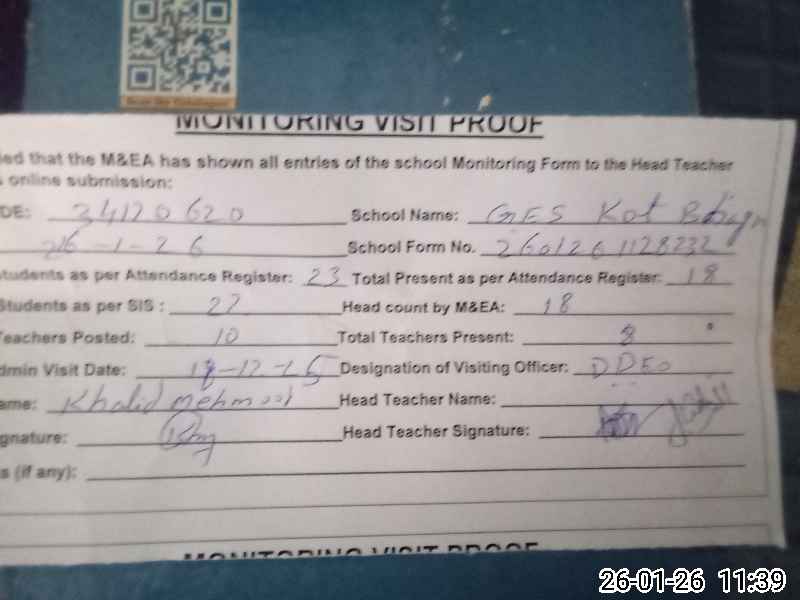 MONITORING VISIT PROOF
ied that the M&EA has shown all entries of the school Monitoring Form to the Head Teacher
s online submission:
DE: 34120620 School Name: GES Kot
26-1-26 School Form No. 2601261128232
students as per Attendance Register: 23 Total Present as per Attendance Register: 18
Students as per SIS: 27 Head count by M&EA: 18
Teachers Posted: 10 Total Teachers Present: 8
dmin Visit Date: 18-12-25 Designation of Visiting Officer: DDEO
ame: Khalid mehmood Head Teacher Name:
gnature: Head Teacher Signature:
s (if any):
MONITORING VISIT PROOF
26-01-26 11:39